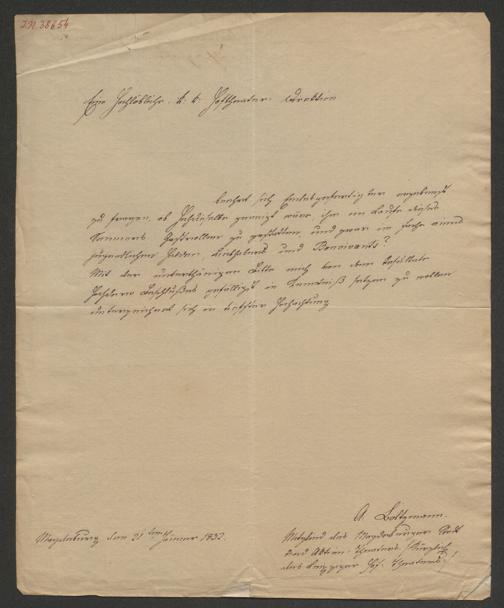 I.N. 38654
Eine Hochlöbliche k: k: Hoftheater-Direktion
beehrt sich Endesgefertigter ergebenst
zu fragen, ob Hochdieselbe geneigt wäre ihm im Laufe dieses
Sommers Gastrollen zu gestatten, und zwar im Fache eines
jugendlichen Helden, Liebhabers und Bonvivants?
Mit der unterthänigen Bitte mich von dem Resultate
Beschlußes gefälligst in Kenntniß setzen zu wollen
unterzeichnet sich in tiefster Hochachtung
A Boltzmann.
Magdeburg den 21ten Januar 1832.
Mitglied des Magdeburger Stadt
und Aktien-Theaters,
des Leipziger Hof-Theaters!